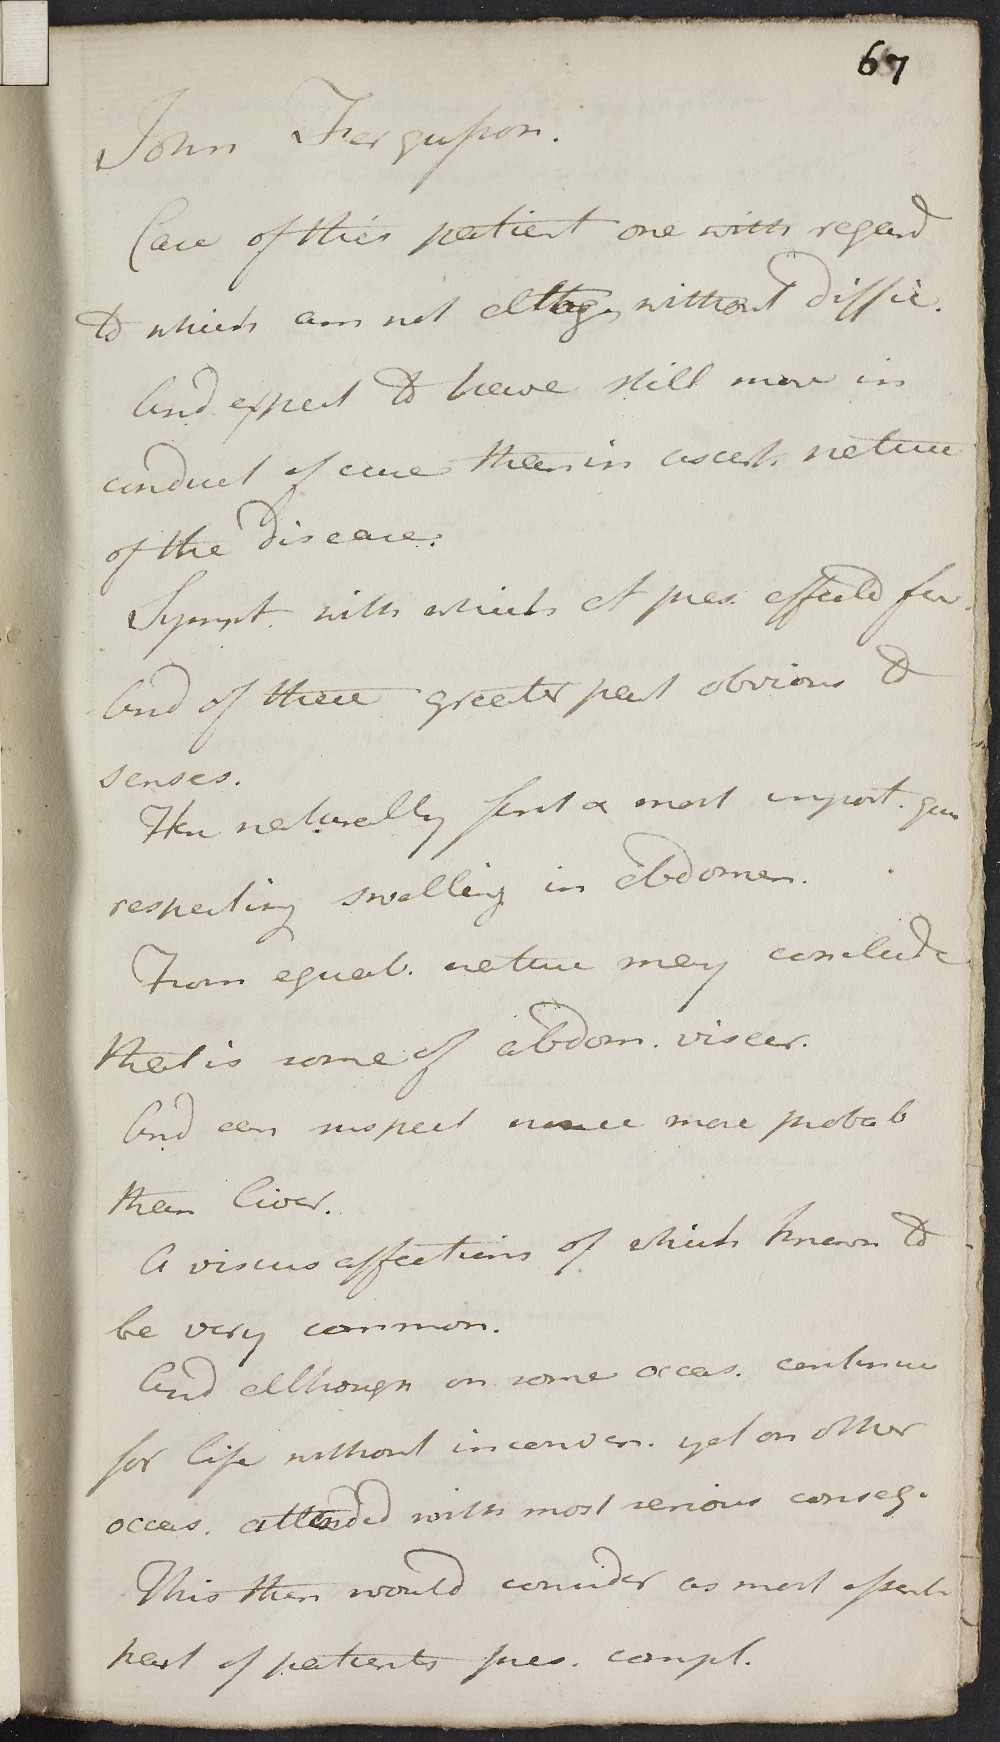 67
John Fergusson.
Case of this patient one with regard
to which am not altog. without diffic.
And expect to have still more in
conduct of cure than in ascert. nature
of the disease.
Sympt. with which at pres. affected few
And of these greater part obvious to
senses.
Her naturally first & most import. ques
respecting swelling in abdomen.
From equab. nature may conclude
that is some of abdom. viscer.
And can suspect none more probab
than liver.
A viscus affections of which known to
be very common.
And although on some occas. continue
for life without inconven. yet on other
occas. attended with most serious conseq.
This then would consider as most essent
part of patients pres. compl.